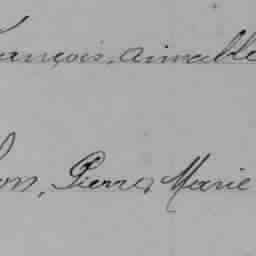 François, Aimable
on, Pierre Marie